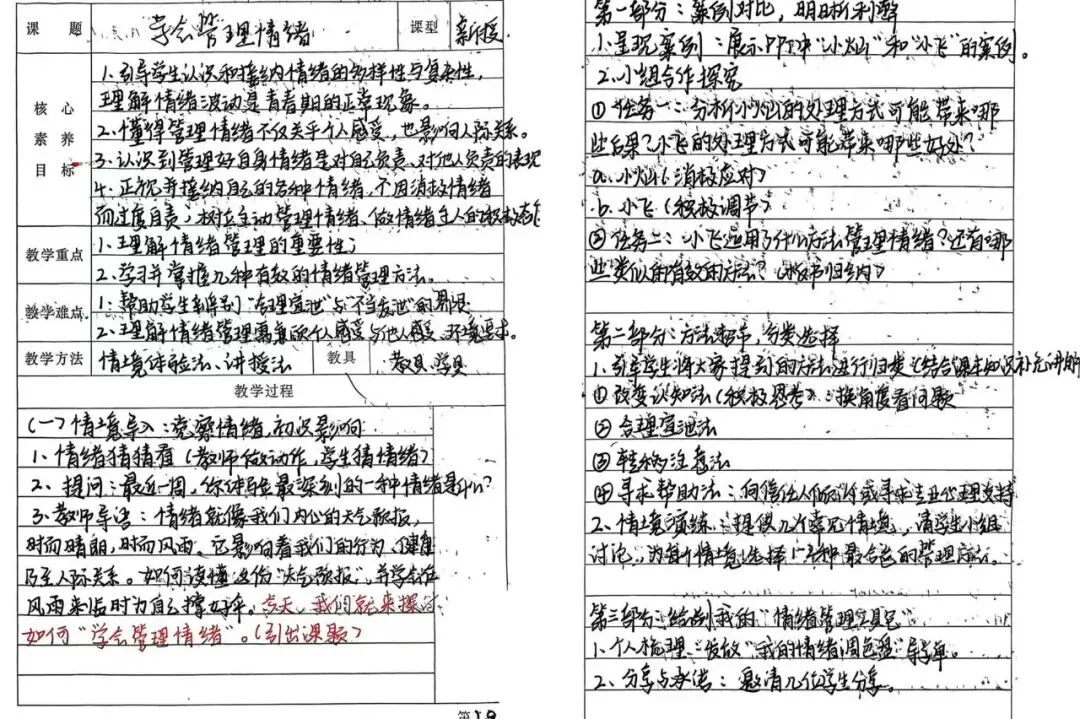 课 题
学会管理情绪
课型
新授
核 心 素 养 目 标
1.引导学生认识和接纳情绪的多样性与复杂性,
理解情绪波动是青春期的正常现象。
2.懂得管理情绪不仅关乎个人感受,也影响人际关系。
3.认识到管理好自身情绪是对自己负责、对他人负责的表现
4.正视并接纳自己的各种情绪,不因消极情绪
而过度自责,树立主动管理情绪、做情绪主人的积极态度
教学重点
1.理解情绪管理的重要性;
2.学习并掌握几种有效的情绪管理方法。
教学难点
1.帮助学生辨别“合理宣泄”与“不当发泄”的界限
2.理解情绪管理需兼顾个人感受与他人感受、环境要求。
教学方法
情境体验法、讲授法
教具
教具、学具
教学过程
(一)情境导入:觉察情绪,初识影响
1、情绪猜猜看(教师做动作,学生猜情绪)
2、提问:最近一周,你体验最深刻的一种情绪是什么?
3.教师导语:情绪就像我们内心的天气预报,
时而晴朗,时而风雨。它影响着我们的行为、健康
乃至人际关系。如何读懂这份“天气预报”,并学会在
风雨来临时为自己撑好伞。今天,我们就来探讨
如何“学会管理情绪”。(引出课题)
第一部分:案例对比,明晰利弊
1.呈现案例:展示PPT中“小灿”和“小飞”的案例。
2.小组合作探究
①任务一:分析小灿的处理方式可能带来哪
些后果?小飞的处理方式可能带来哪些好处?
a.小灿(消极应对)
b.小飞(积极调节)
②任务二:小飞运用了什么方法管理情绪?还有哪
些类似的有效的方法?(板书归纳)
第二部分:方法,分类选择
1.引导学生将大家提到的方法进行归类(结合课本知识补充讲解
①改变认知法(积极思考):换角度看问题
②合理宣泄法
③转移注意法
④寻求帮助法:向信任人倾诉或寻求专业心理支持
2、情境演练:提供几个常见情境,请学生小组
讨论,为每个情境选择1-2种最合适的管理方法。
第三部分:绘制我的“情绪管理工具包”
1.个人梳理:发放“我的情绪调色盘”导学单。
2、分享与承诺:邀请几位学生分享。